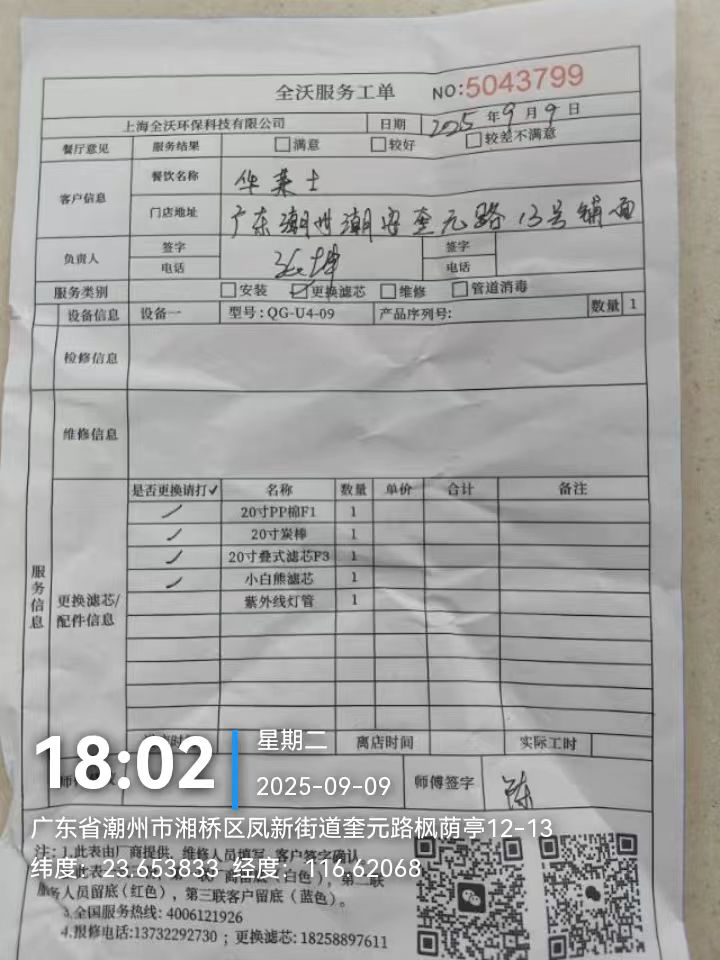 全沃服务工单 NO:5043799
上海全沃环保科技有限公司 日期 2025年9月9日
餐厅意见 服务结果 满意 较好 较差不满意
客户信息 餐饮名称 华莱士
门店地址 广东潮州潮安奎元路13号铺面
负责人 签字 签字
电话 电话
服务类别 安装 更换滤芯 维修 管道消毒
设备信息 设备一 型号:QG-U4-09 产品序列号: 数量 1
检修信息
维修信息
服务信息
更换滤芯/配件信息
是否更换请打✓ 名称 数量 单价 合计 备注
✓ 20寸PP棉F1 1
✓ 20寸炭棒 1
✓ 20寸叠式滤芯F3 1
✓ 小白熊滤芯 1
紫外线灯管 1
离店时间 实际工时
师傅签字 陈
18:02 星期二
2025-09-09
广东省潮州市湘桥区凤新街道奎元路枫荫亭12-13
纬度：23.653833 经度：116.62068
注：1.此表由厂商提供，维修人员填写，客户签字确认
人员留底（红色），第三联客户留底（蓝色）。
3.全国服务热线: 4006121926
4.报修电话:13732292730；更换滤芯: 18258897611